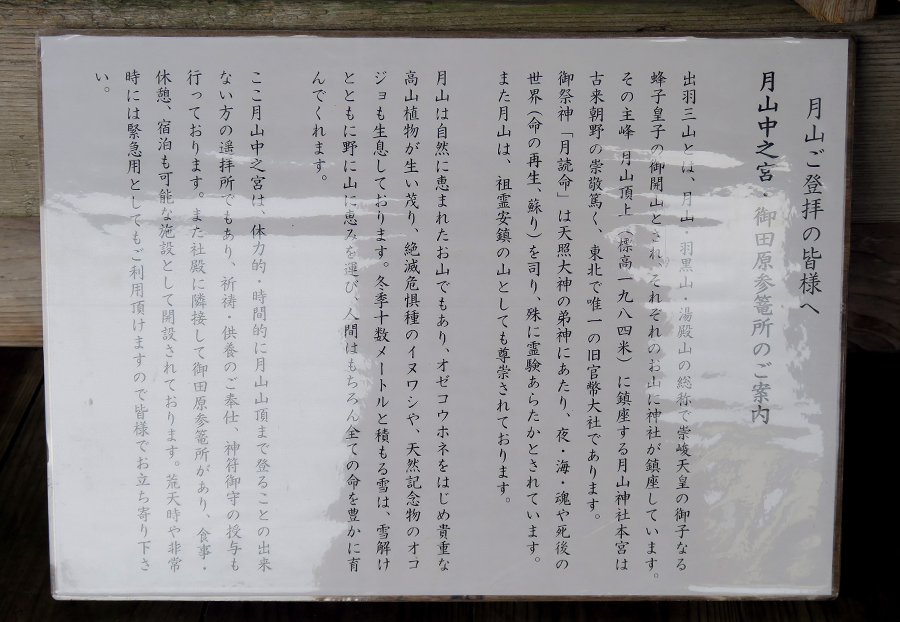 月山ご登拝の皆様へ
月山中之宮・御田原参篭所のご案内
出羽三山とは、月山・羽黒山・湯殿山の総称で崇峻天皇の御子なる
蜂子皇子の御開山とされ、それぞれのお山に神社が鎮座しています。
その主峰 月山頂上（標高一九八四米）に鎮座する月山神社本宮は
古来朝野の崇敬篤く、東北で唯一の旧官幣大社であります。
御祭神「月読命」は天照大神の弟神にあたり、夜・海・魂や死後の
世界（命の再生、蘇り）を司り、殊に霊験あらたかとされています。
また月山は、祖霊安鎮の山としても尊崇されております。
月山は自然に恵まれたお山でもあり、オゼコウホネをはじめ貴重な
高山植物が生い茂り、絶滅危惧種のイヌワシや、天然記念物のオコ
ジョも生息しております。冬季十数メートルと積もる雪は、雪解け
とともに野に山に恵みを運び、人間はもちろん全ての命を豊かに育
んでくれます。
ここ月山中之宮は、体力的・時間的に月山山頂まで登ることの出来
ない方の遥拝所でもあり、祈祷・供養のご奉仕、神符御守の授与も
行っております。また社殿に隣接して御田原参篭所があり、食事・
休憩、宿泊も可能な施設として開設されております。荒天時や非常
時には緊急用としてもご利用頂けますので皆様でお立ち寄り下さ
い。